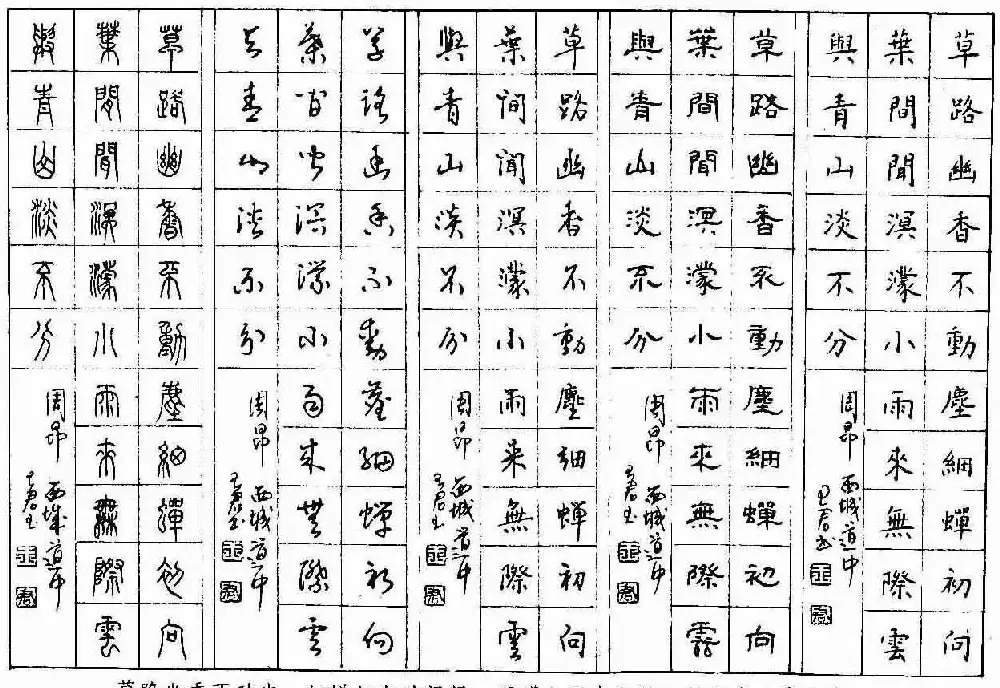 草路幽香不動塵細蟬初向
葉間聞溟濛小雨來無際雲
與青山淡不分
周昂 西城道中
草路幽香不動塵細蟬初向
葉間聞溟濛小雨來無際雲
與青山淡不分
周昂 西城道中
草路幽香不動塵細蟬初向
葉間聞溟濛小雨来無際雲
與青山淡不分
周昂 西城道中
草路幽香不動塵細蟬初向
葉間聞溟濛小雨来無際雲
與青山淡不分
周昂 西城道中
草路幽香不動塵細蟬初向
葉間聞溟濛小雨來無際雲
與青山淡不分
周昂 西城道中